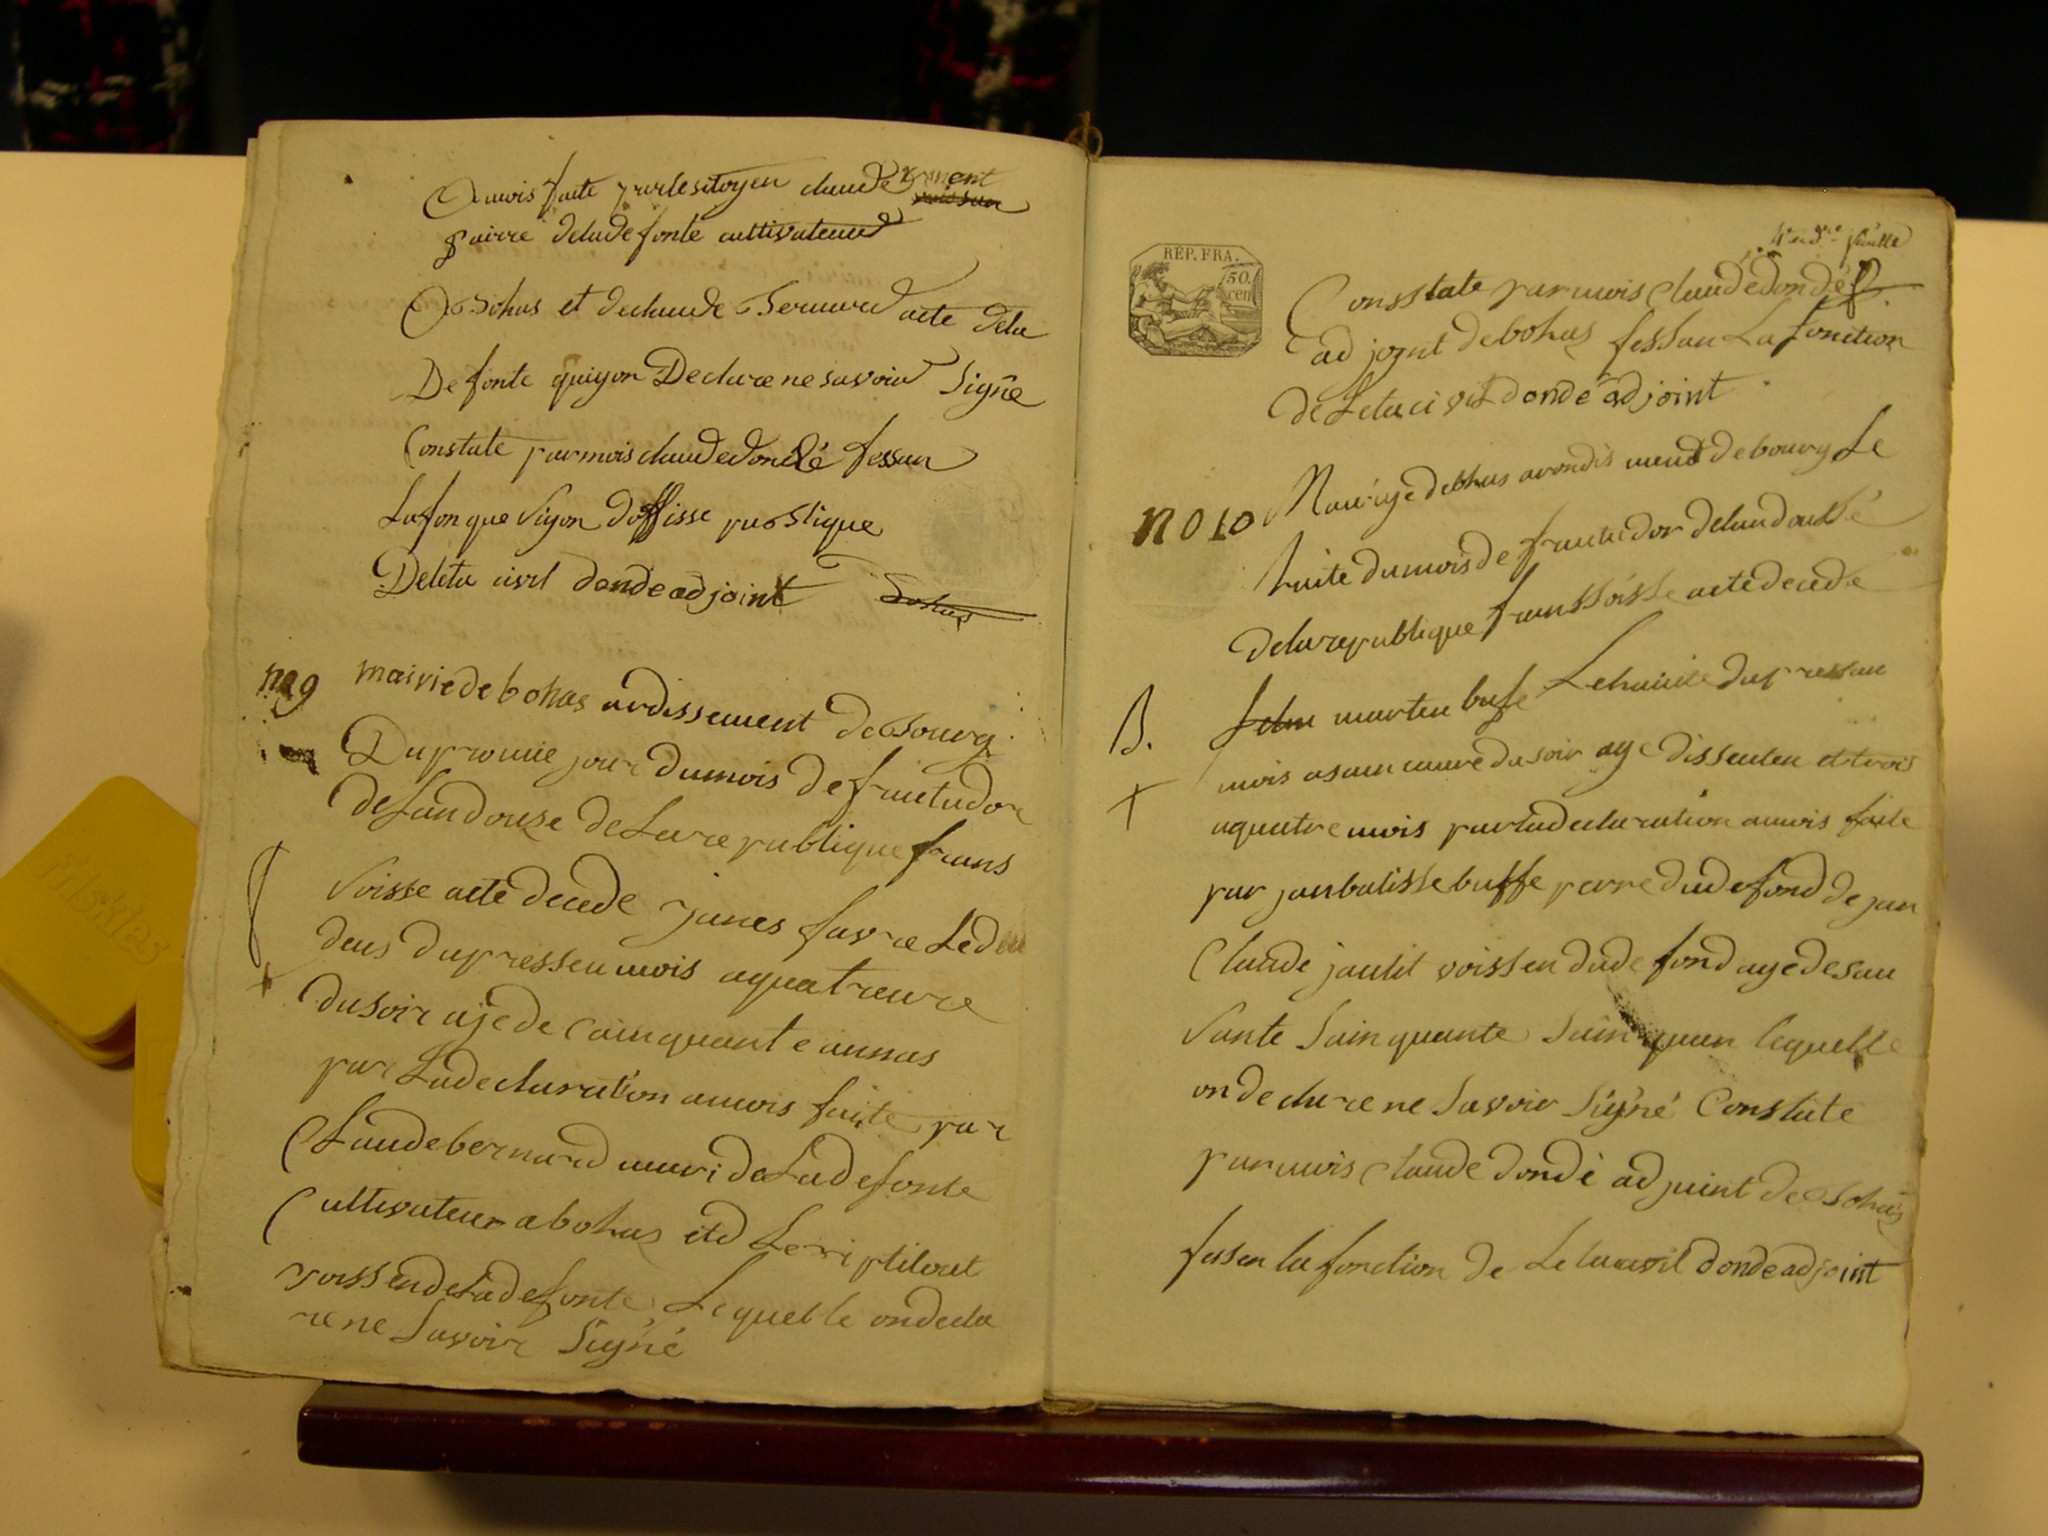 Amois faite parlesitoyen claude
pairre deladefonte cultivateur
A Bohas et declaude Bernard acte dela
Defonte quiyon Declare ne savoir Signe
Constate parmois claudedondé fessan
Lafonque siyon doffisse publique
Deleta civil dondeadjoint Bohas
no 9 mairie de bohas ardissement de Bourg
Dupromie jour dumois de fruetudor
de Landouse de Lare publique frans
Soisse acte decede janes favre Ledeu
deus dupressen mois aquatreure
dusoir ajede cainquante annas
par Ladeclaration amois faite par
Claudebernard mari de Ladefonte
Cultivateur abohas etd
voissendeladefonte Lequelle ondecla
re ne Savoir Signé
REP. FRA.
50
cen
feuille
Consstate parmois Claudedondé
adjoynt debohas fessan La fonction
de Letacivil dondé adjoint
no 10 Mairiye debhas arondis ment debourg Le
huite dumois de frutudor delandousé
delarepublique franssoisse acte decede
B. marten bufe Lehuite dupressan
mois asain eure dusoir age dissenten et trois
aquatre mois parladeclaration amois faite
par janbatisse buffe perre dudefond de jan
Claude jaulit voissen dude fond age desau
sante Sainquante Sainquan lequelle
on declare ne Savoir Signé Constate
parmois Claude dondé adjuint de Bohas
fesen la fonction de Letacivil dondeadjoint